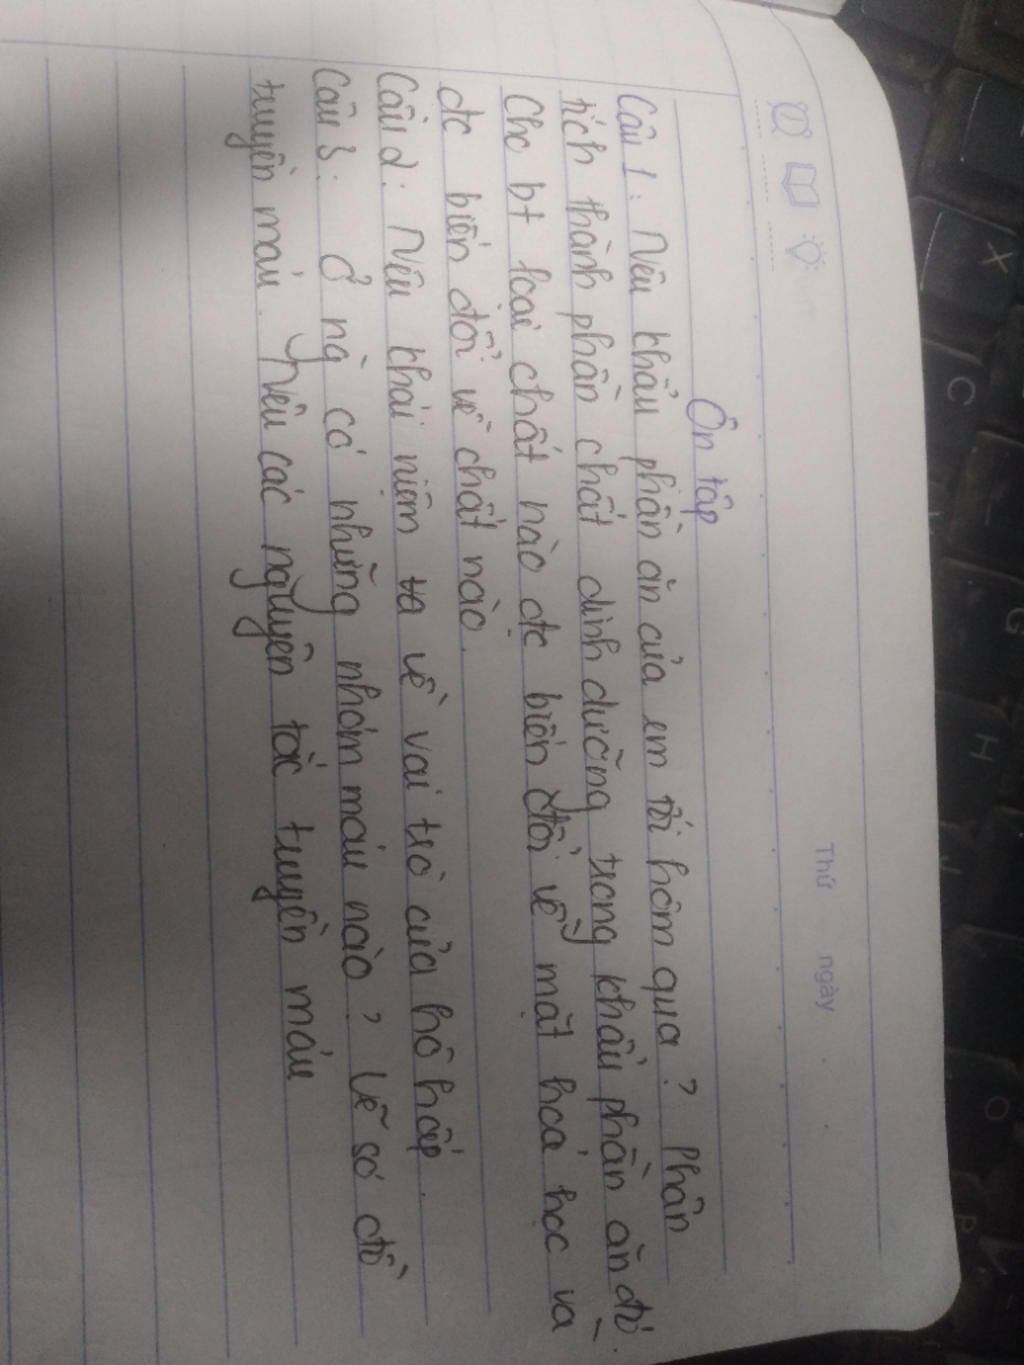 Thứ ngày
Ôn tập
Câu 1: Nêu khẩu phần ăn của em tối hôm qua? Phân
tích thành phần chất dinh dưỡng trong khẩu phần ăn đó.
Cho bt loại chất nào đc biến đổi về mặt hoá học và
đc biến đổi về chất nào.
Câu 2: Nêu khái niệm và về vai trò của hô hấp.
Câu 3: Ở ng có những nhóm máu nào? Vẽ sơ đồ
truyền máu. Nêu các nguyên tắc truyền máu
X
C
V
G
H
J
O
P
L